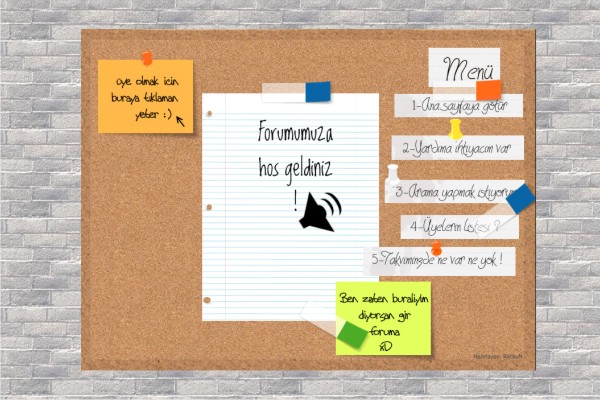 üye olmak için
buraya tıklaman
yeter :)
Forumumuza
hos geldiniz
!
Menü
1-Ana.sayfaya götür
2-Yardıma ihtiyacım var
3-Arama yapmak istiyorum
4-Üyelerin Listesi ?
5-Takvimimizde ne var ne yok !
Ben zaten buralıyım
diyorsan gir
foruma
xD